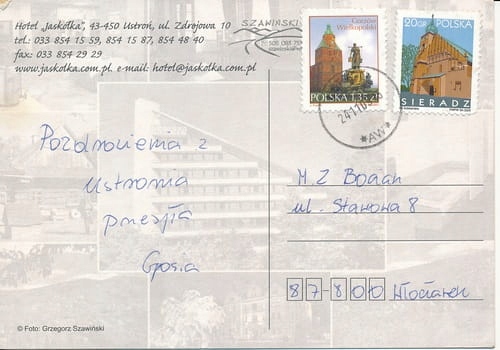 Hotel „Jaskółka", 43-450 Ustroń, ul. Zdrojowa 10
tel.: 033 854 15 59, 854 15 87, 854 48 40
fax: 033 854 29 29
www.jaskolka.com.pl. e-mail: hotel@jaskolka.com.pl
SZAWIŃSKI
Gorzów
Wielkopolski
POLSKA 1,35 zł
20 GR POLSKA
SIERADZ
*AW*
Pozdrowienia z
Ustronia
przesyła
Gosia
M. Z Bogan
ul. Stawowa 8
87-800 Włocławek
© Foto: Grzegorz Szawiński